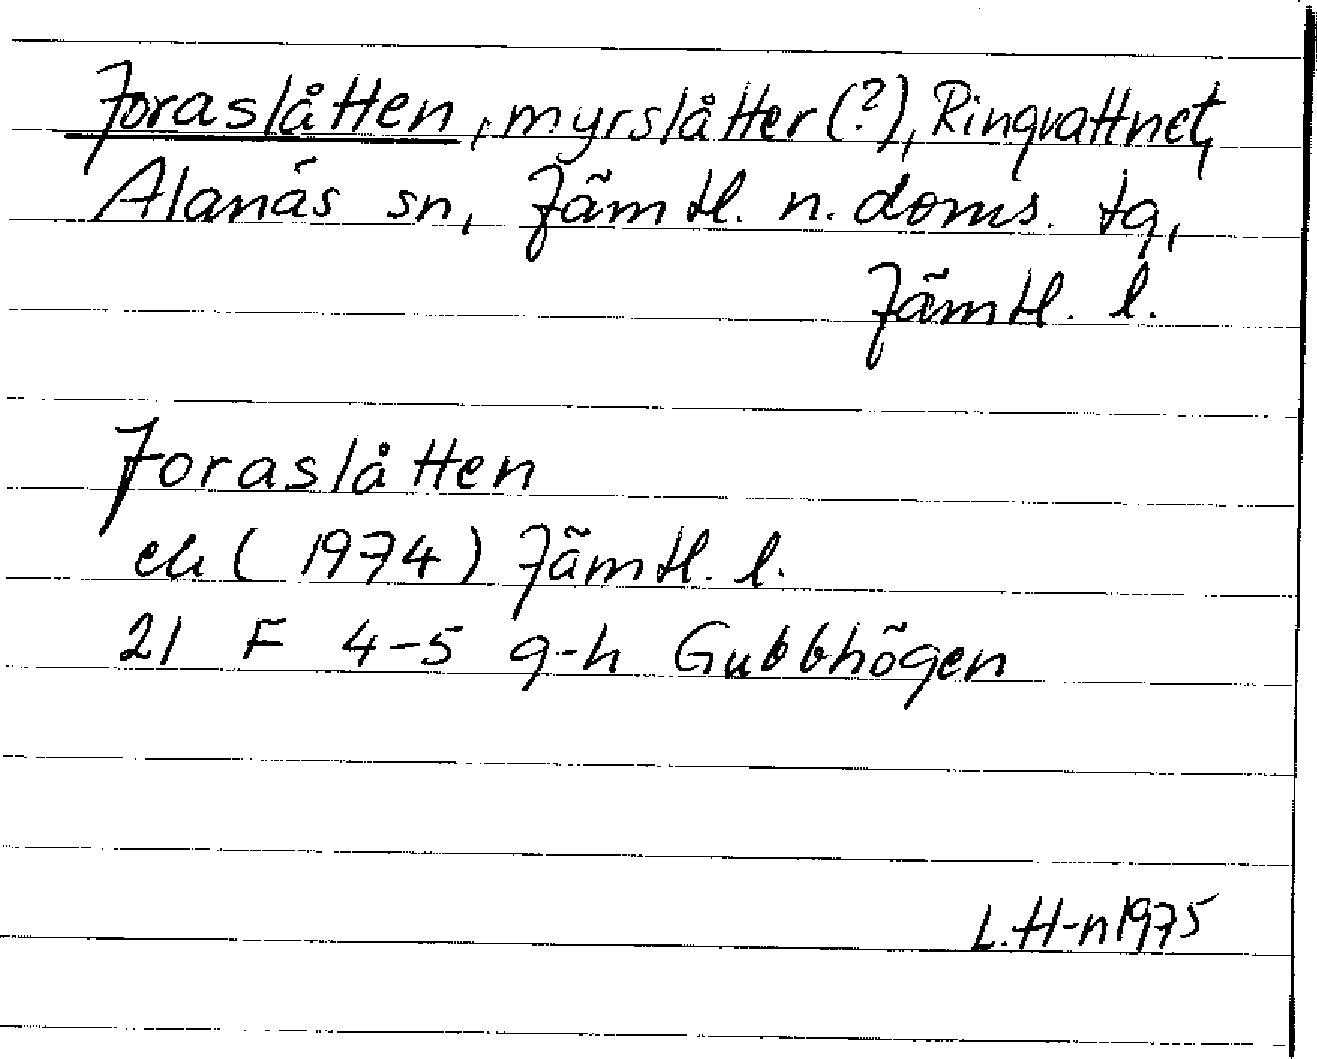 Foraslåtten, myrslåtter (?), Ringvattnet,
Alanäs sn, Jämtl. n. doms. tg,
Jämtl. l.
Foraslåtten
ek (1974) Jämtl. l.
21 F 4-5 g-h Gubbhögen
L. H-n 1975